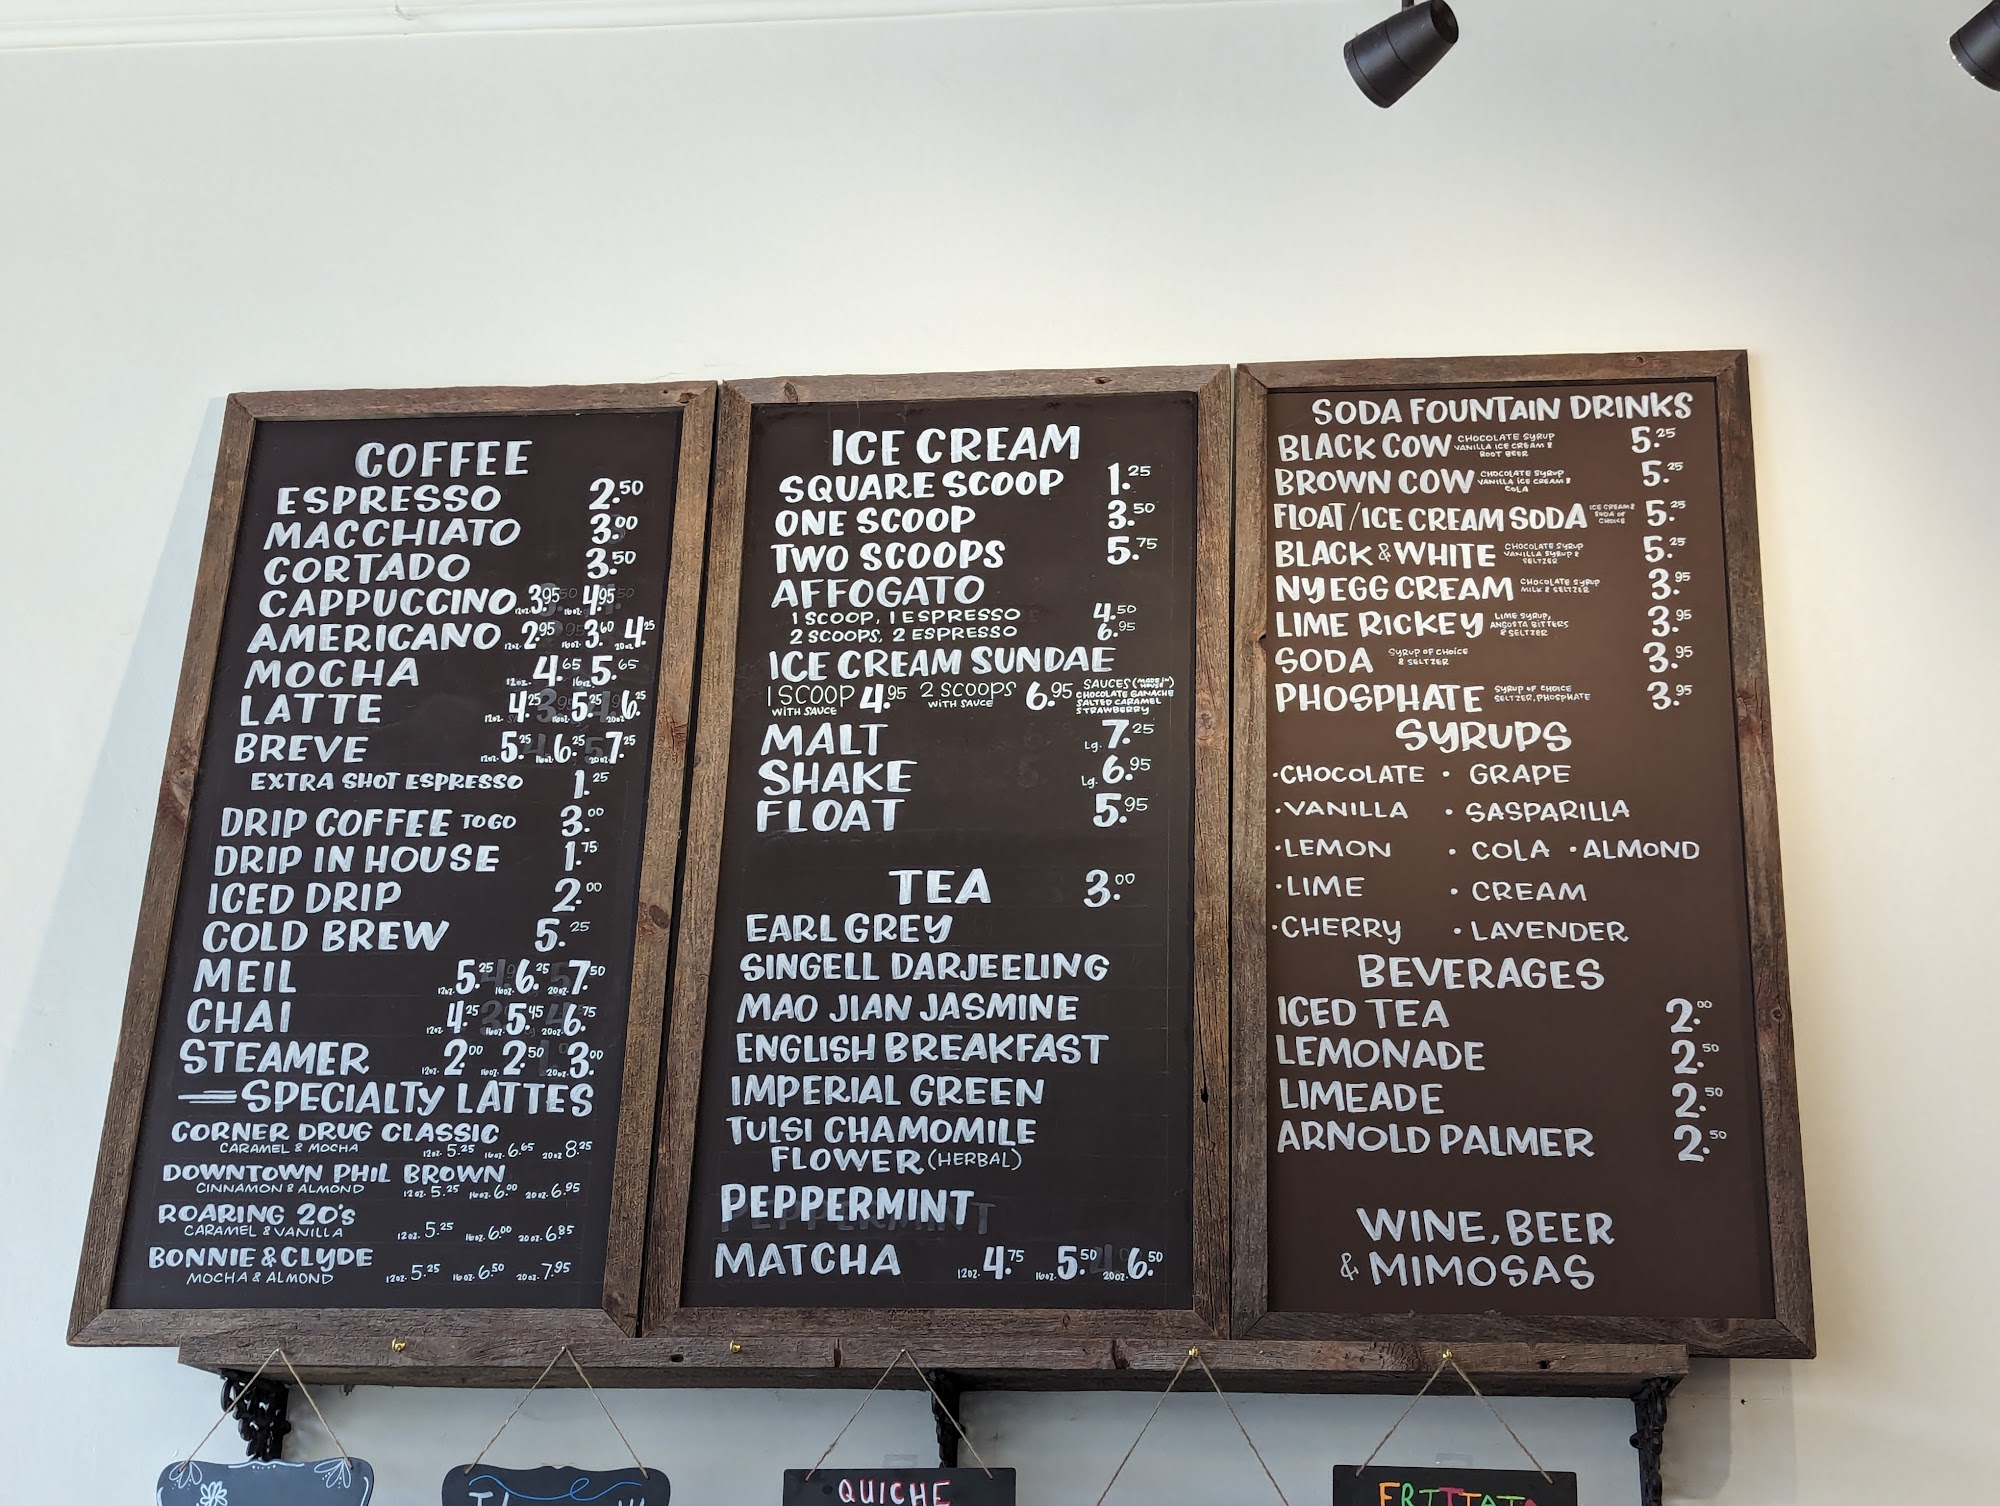 COFFEE
ESPRESSO 2.50
MACCHIATO 3.00
CORTADO 3.50
CAPPUCCINO 12oz. 3.95 16oz. 4.95
AMERICANO 12oz. 2.95 16oz. 3.60 20oz. 4.25
MOCHA 12oz. 4.65 16oz. 5.65
LATTE 12oz. 4.25 16oz. 5.25 20oz. 6.25
BREVE 12oz. 5.25 16oz. 6.25 20oz. 7.25
EXTRA SHOT ESPRESSO 1.25
DRIP COFFEE TO GO 3.00
DRIP IN HOUSE 1.75
ICED DRIP 2.00
COLD BREW 5.25
MEIL 12oz. 5.25 16oz. 6.25 20oz. 7.50
CHAI 12oz. 4.25 16oz. 5.45 20oz. 6.75
STEAMER 12oz. 2.00 16oz. 2.50 20oz. 3.00
SPECIALTY LATTES
CORNER DRUG CLASSIC
CARAMEL & MOCHA 12oz. 5.25 16oz. 6.65 20oz 8.25
DOWNTOWN PHIL BROWN
CINNAMON & ALMOND 12oz. 5.25 16oz. 6.00 20oz. 6.95
ROARING 20's
CARAMEL & VANILLA 12oz. 5.25 16oz. 6.00 20oz. 6.85
BONNIE & CLYDE
MOCHA & ALMOND 12oz. 5.25 16oz. 6.50 20oz. 7.95
ICE CREAM
SQUARE SCOOP 1.25
ONE SCOOP 3.50
TWO SCOOPS 5.75
AFFOGATO
1 SCOOP, 1 ESPRESSO 4.50
2 SCOOPS, 2 ESPRESSO 6.95
ICE CREAM SUNDAE
1 SCOOP WITH SAUCE 4.95 2 SCOOPS WITH SAUCE 6.95
SAUCES (MADE IN HOUSE)
CHOCOLATE GANACHE
SALTED CARAMEL
STRAWBERRY
MALT Lg. 7.25
SHAKE Lg. 6.95
FLOAT 5.95
TEA 3.00
EARL GREY
SINGELL DARJEELING
MAO JIAN JASMINE
ENGLISH BREAKFAST
IMPERIAL GREEN
TULSI CHAMOMILE
FLOWER (HERBAL)
PEPPERMINT
MATCHA 12oz. 4.75 16oz. 5.50 20oz. 6.50
SODA FOUNTAIN DRINKS
BLACK COW CHOCOLATE SYRUP VANILLA ICE CREAM & ROOT BEER 5.25
BROWN COW CHOCOLATE SYRUP VANILLA ICE CREAM & COLA 5.25
FLOAT/ICE CREAM SODA ICE CREAM & SODA OF CHOICE 5.25
BLACK & WHITE CHOCOLATE SYRUP VANILLA SYRUP & SELTZER 5.25
NY EGG CREAM CHOCOLATE SYRUP MILK & SELTZER 3.95
LIME RICKEY LIME SYRUP, ANGOSTA BITTERS & SELTZER 3.95
SODA SYRUP OF CHOICE & SELTZER 3.95
PHOSPHATE SYRUP OF CHOICE SELTZER, PHOSPHATE 3.95
SYRUPS
·CHOCOLATE · GRAPE
·VANILLA · SASPARILLA
·LEMON · COLA ·ALMOND
·LIME · CREAM
·CHERRY · LAVENDER
BEVERAGES
ICED TEA 2.00
LEMONADE 2.50
LIMEADE 2.50
ARNOLD PALMER 2.50
WINE, BEER
& MIMOSAS
QUICHE